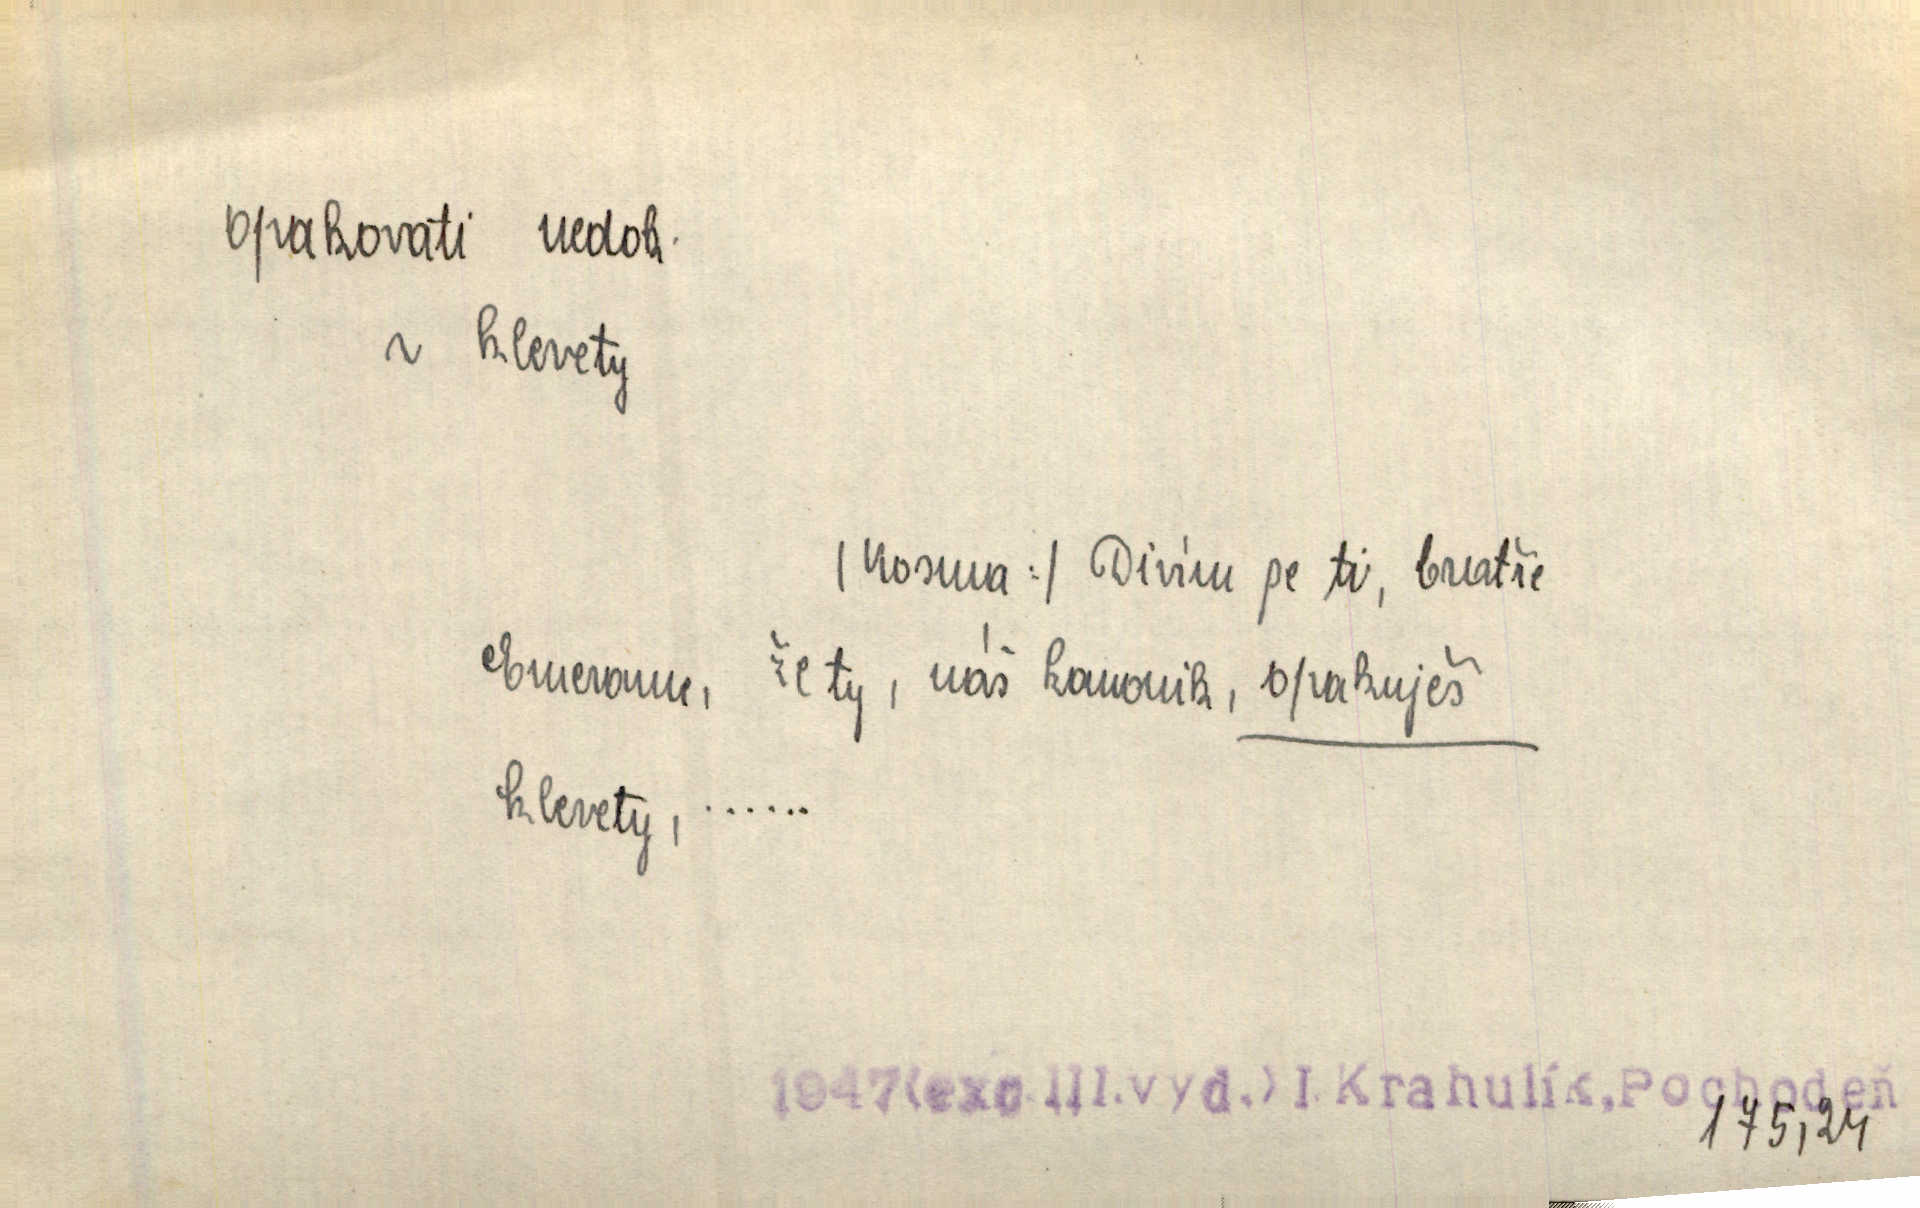 opakovati nedok.
~ klevety
/Kosma:/ Divím se ti, bratře
Emerame, že ty, náš kanovník, opakuješ
klevety, ......
1947(exc.III.vyd.)I.Krahulík,Pochodeň
175,24